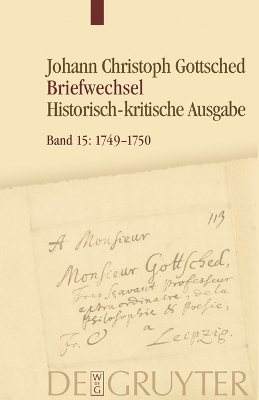 Johann Christoph Gottsched
Briefwechsel
Historisch-kritische Ausgabe
Band 15: 1749–1750
113
A Monsieur
Monsieur Gottsched,
Tres savant professeur
extraordinaire, de la
Philosophie & Poesie,
Fr. à Leipzig.
DE GRUYTER
W
DE
G